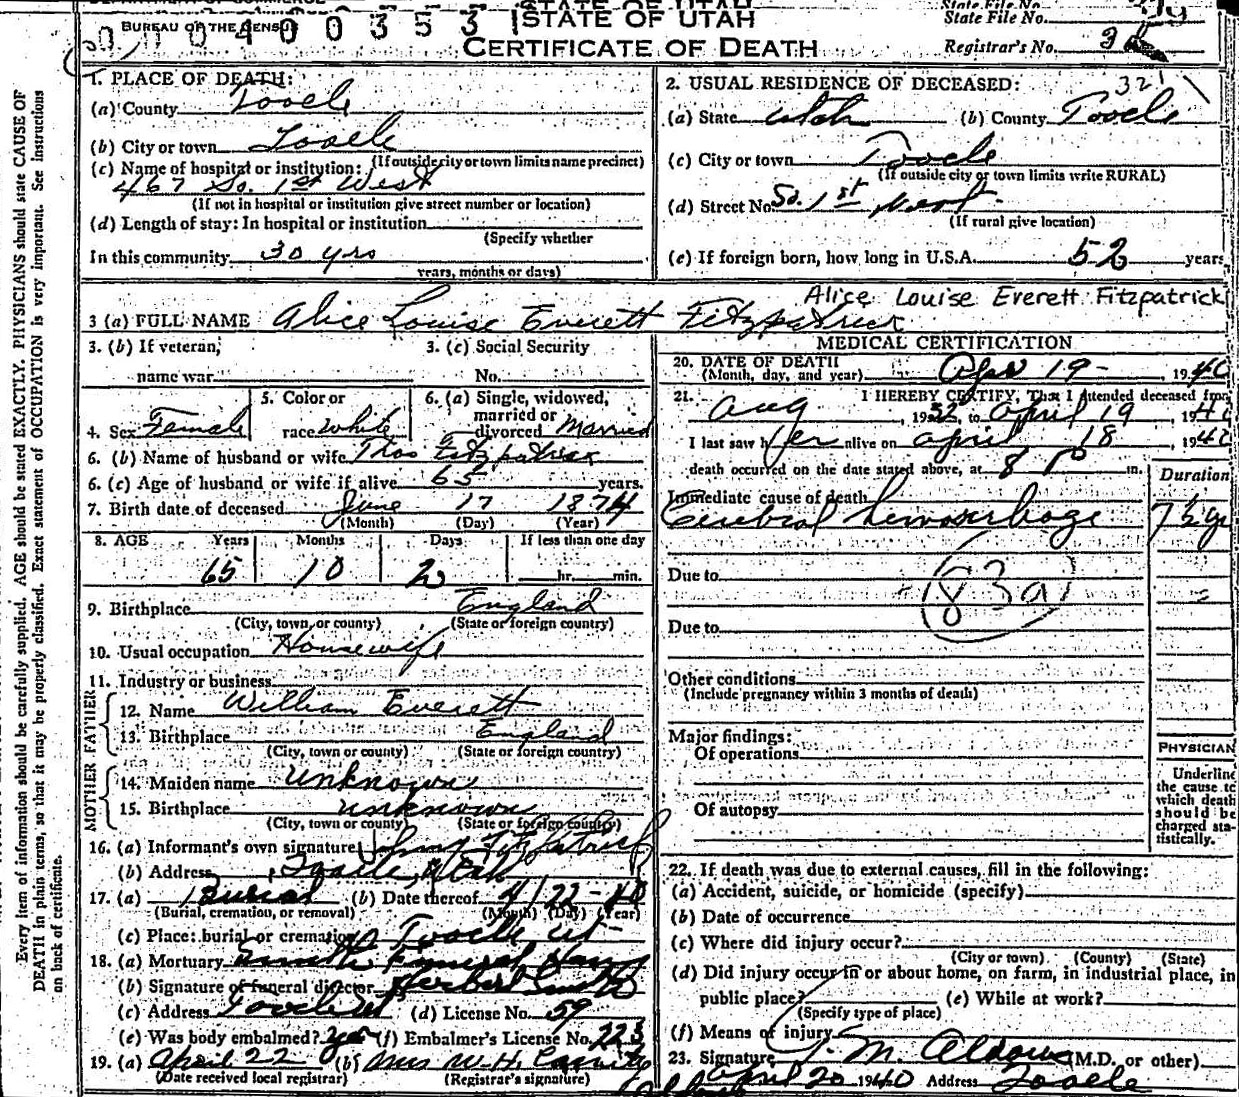 BUREAU OF THE CENSUS
400353
STATE OF UTAH
CERTIFICATE OF DEATH
State File No.
Registrar's No. 3
1. PLACE OF DEATH:
(a) County Tooele
(b) City or town Tooele
(If outside city or town limits name precinct)
(c) Name of hospital or institution:
467 So. 1st West
(If not in hospital or institution give street number or location)
(d) Length of stay: In hospital or institution
(Specify whether
In this community 30 yrs
years, months or days)
2. USUAL RESIDENCE OF DECEASED:
32
(a) State Utah (b) County Tooele
(c) City or town Tooele
(If outside city or town limits write RURAL)
(d) Street No. So. 1st West
(If rural give location)
(e) If foreign born, how long in U.S.A. 52 years
Alice Louise Everett Fitzpatrick
3 (a) FULL NAME Alice Louise Everett Fitzpatrick
3. (b) If veteran,
name war
3. (c) Social Security
No.
4. Sex Female
5. Color or
race White
6. (a) Single, widowed,
married or
divorced Married
6. (b) Name of husband or wife Thos Fitzpatrick
6. (c) Age of husband or wife if alive 65 years.
7. Birth date of deceased June 17 1874
(Month) (Day) (Year)
8. AGE Years Months Days If less than one day
65 10 2 hr. min.
9. Birthplace England
(City, town, or county) (State or foreign country)
10. Usual occupation Housewife
11. Industry or business
FATHER
12. Name William Everett
13. Birthplace England
(City, town or county) (State or foreign country)
MOTHER
14. Maiden name Unknown
15. Birthplace unknown
(City, town or county) (State or foreign country)
16. (a) Informant's own signature Fitzpatrick
(b) Address Tooele, Utah
17. (a) Burial (b) Date thereof 4/22-40
(Burial, cremation, or removal) (Month) (Day) (Year)
(c) Place: burial or cremation Tooele Ut
18. (a) Mortuary Funeral
(b) Signature of funeral director Herbert Smith
(c) Address Tooele Ut (d) License No. 59
(e) Was body embalmed? yes (f) Embalmer's License No. 223
19. (a) April 22 (b) Mrs W. H.
(Date received local registrar) (Registrar's signature)
MEDICAL CERTIFICATION
20. DATE OF DEATH
(Month, day, and year) Apr 19- 1940
21. I HEREBY CERTIFY, That I Attended deceased from
Aug 1932, to April 19 1940
I last saw her alive on April 18 1940
death occurred on the date stated above, at 8 P m.
Duration
Immediate cause of death
Cerebral hemorrhage 7½ yr
Due to
83a
Due to
Other conditions
(Include pregnancy within 3 months of death)
Major findings:
Of operations
Of autopsy
PHYSICIAN
Underline
the cause to
which death
should be
charged sta-
tistically.
22. If death was due to external causes, fill in the following:
(a) Accident, suicide, or homicide (specify)
(b) Date of occurrence
(c) Where did injury occur?
(City or town) (County) (State)
(d) Did injury occur in or about home, on farm, in industrial place, in
public place? (e) While at work?
(Specify type of place)
(f) Means of injury
23. Signature M. (M.D. or other)
April 20 1940 Address Tooele
Every item of information should be carefully supplied. AGE should be stated EXACTLY. PHYSICIANS should state CAUSE OF
DEATH in plain terms, so that it may be properly classified. Exact statement of OCCUPATION is very important. See instructions
on back of certificate.